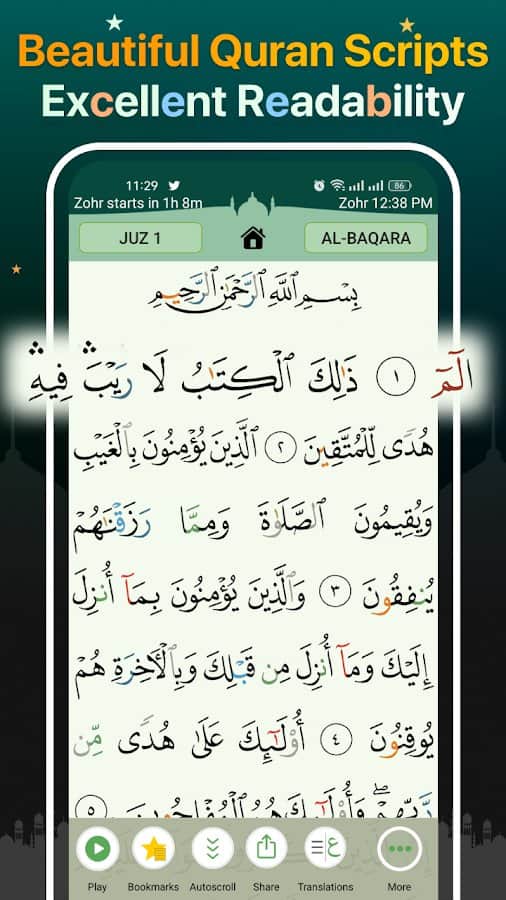 Beautiful Quran Scripts
Excellent Readability
11:29 86
Zohr starts in 1h 8m Zohr 12:38 PM
JUZ 1 AL-BAQARA
بِسْمِ ٱللَّهِ ٱلرَّحْمَٰنِ ٱلرَّحِيمِ
الٓمٓ ١ ذَٰلِكَ ٱلْكِتَٰبُ لَا رَيْبَ ۛ فِيهِ ۛ
هُدًى لِّلْمُتَّقِينَ ٢ ٱلَّذِينَ يُؤْمِنُونَ بِٱلْغَيْبِ
وَيُقِيمُونَ ٱلصَّلَوٰةَ وَمِمَّا رَزَقْنَٰهُمْ
يُنفِقُونَ ٣ وَٱلَّذِينَ يُؤْمِنُونَ بِمَآ أُنزِلَ
إِلَيْكَ وَمَآ أُنزِلَ مِن قَبْلِكَ وَبِٱلْأَخِرَةِ هُمْ
يُوقِنُونَ ٤ أُو۟لَٰٓئِكَ عَلَىٰ هُدًى مِّن
رَّبِّهِمْ ۖ وَأُو۟لَٰٓئِكَ هُمُ ٱلْمُفْلِحُونَ ٥
Play Bookmarks Autoscroll Share Translations More